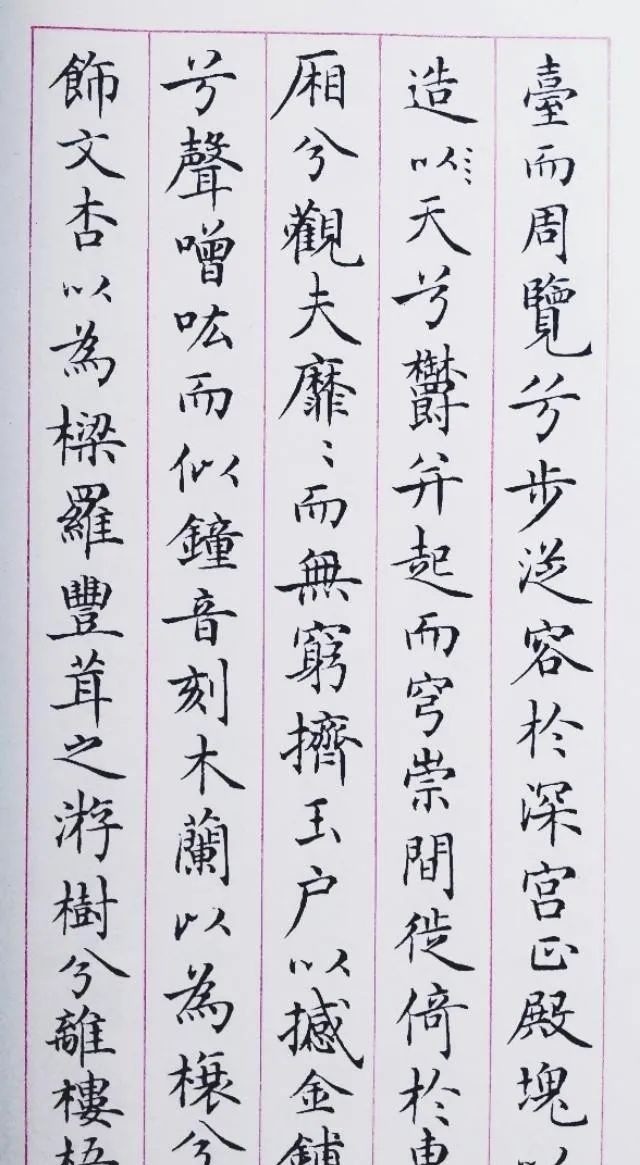 臺而周覽兮步從容於深宮正殿塊以
造以天兮鬱并起而穹崇間徙倚於東
廂兮觀夫靡〻而無窮擠玉户以撼金鋪
兮聲噌吰而似鐘音刻木蘭以為榱兮
飾文杏以為樑羅豐茸之游樹兮離樓梧